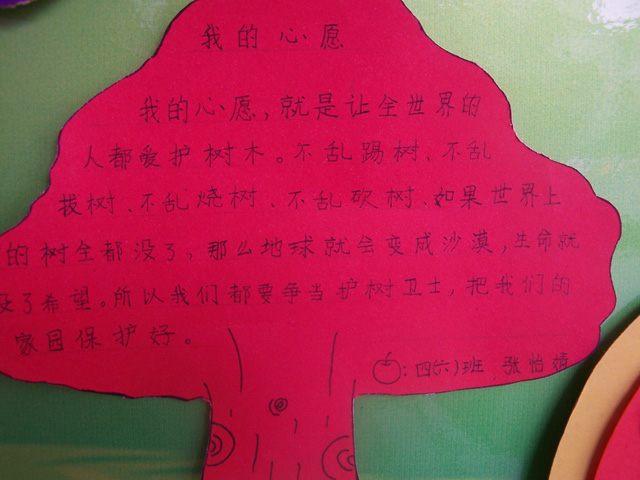 我的心愿
我的心愿，就是让全世界的
人都爱护树木。不乱踢树、不乱
拔树、不乱烧树、不乱砍树、如果世界上
的树全都没了，那么地球就会变成沙漠，生命就
没了希望。所以我们都要争当护树卫士，把我们的
家园保护好。
:四(六)班 张怡婧